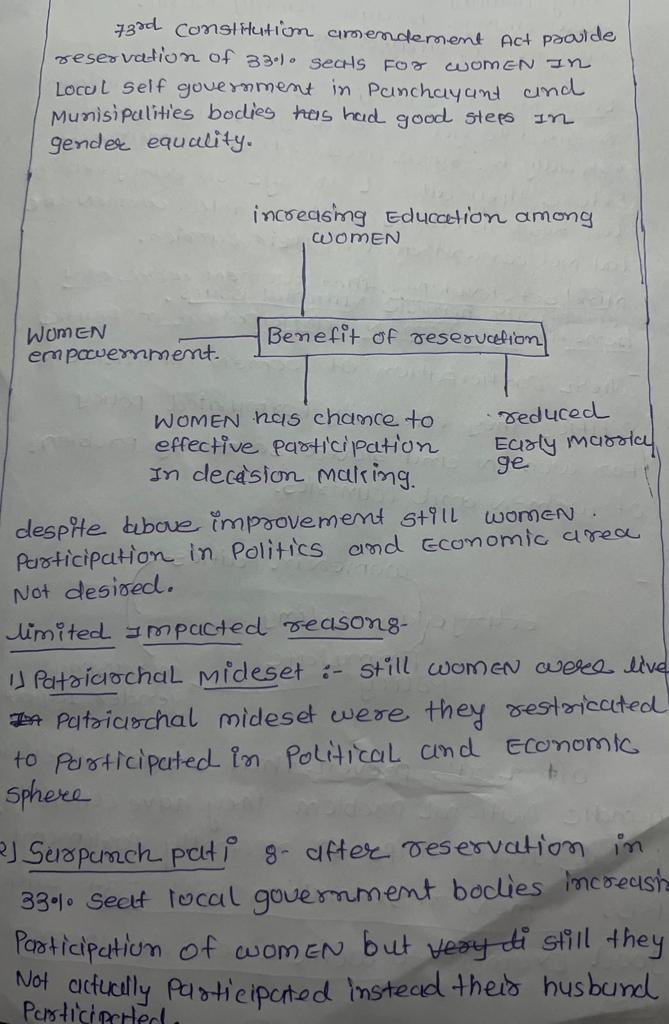 73rd Constitution amendement Act provide
reservation of 33% seats For women In
Local self government in Panchayant and
Munisipalities bodies has had good steps In
gender equality.
increasing Education among
WOMEN
WOMEN
empowernment.
Benefit of reservation
WOMEN has chance to
effective participation
In decision making.
reduced
Early marria
ge
despite above improvement still women
Participation in Politics and Economic area
Not desired.
limited Impacted reasons:-
1) Patriarchal mideset :- still women were live
In patriarchal mideset were they restricated
to participated in Political and Economic
sphere
2) Surpanch pati :- after reservation in
33% seat local government bodies increasin
Participation of women but very di still they
Not actually participated instead their husband
Participated.